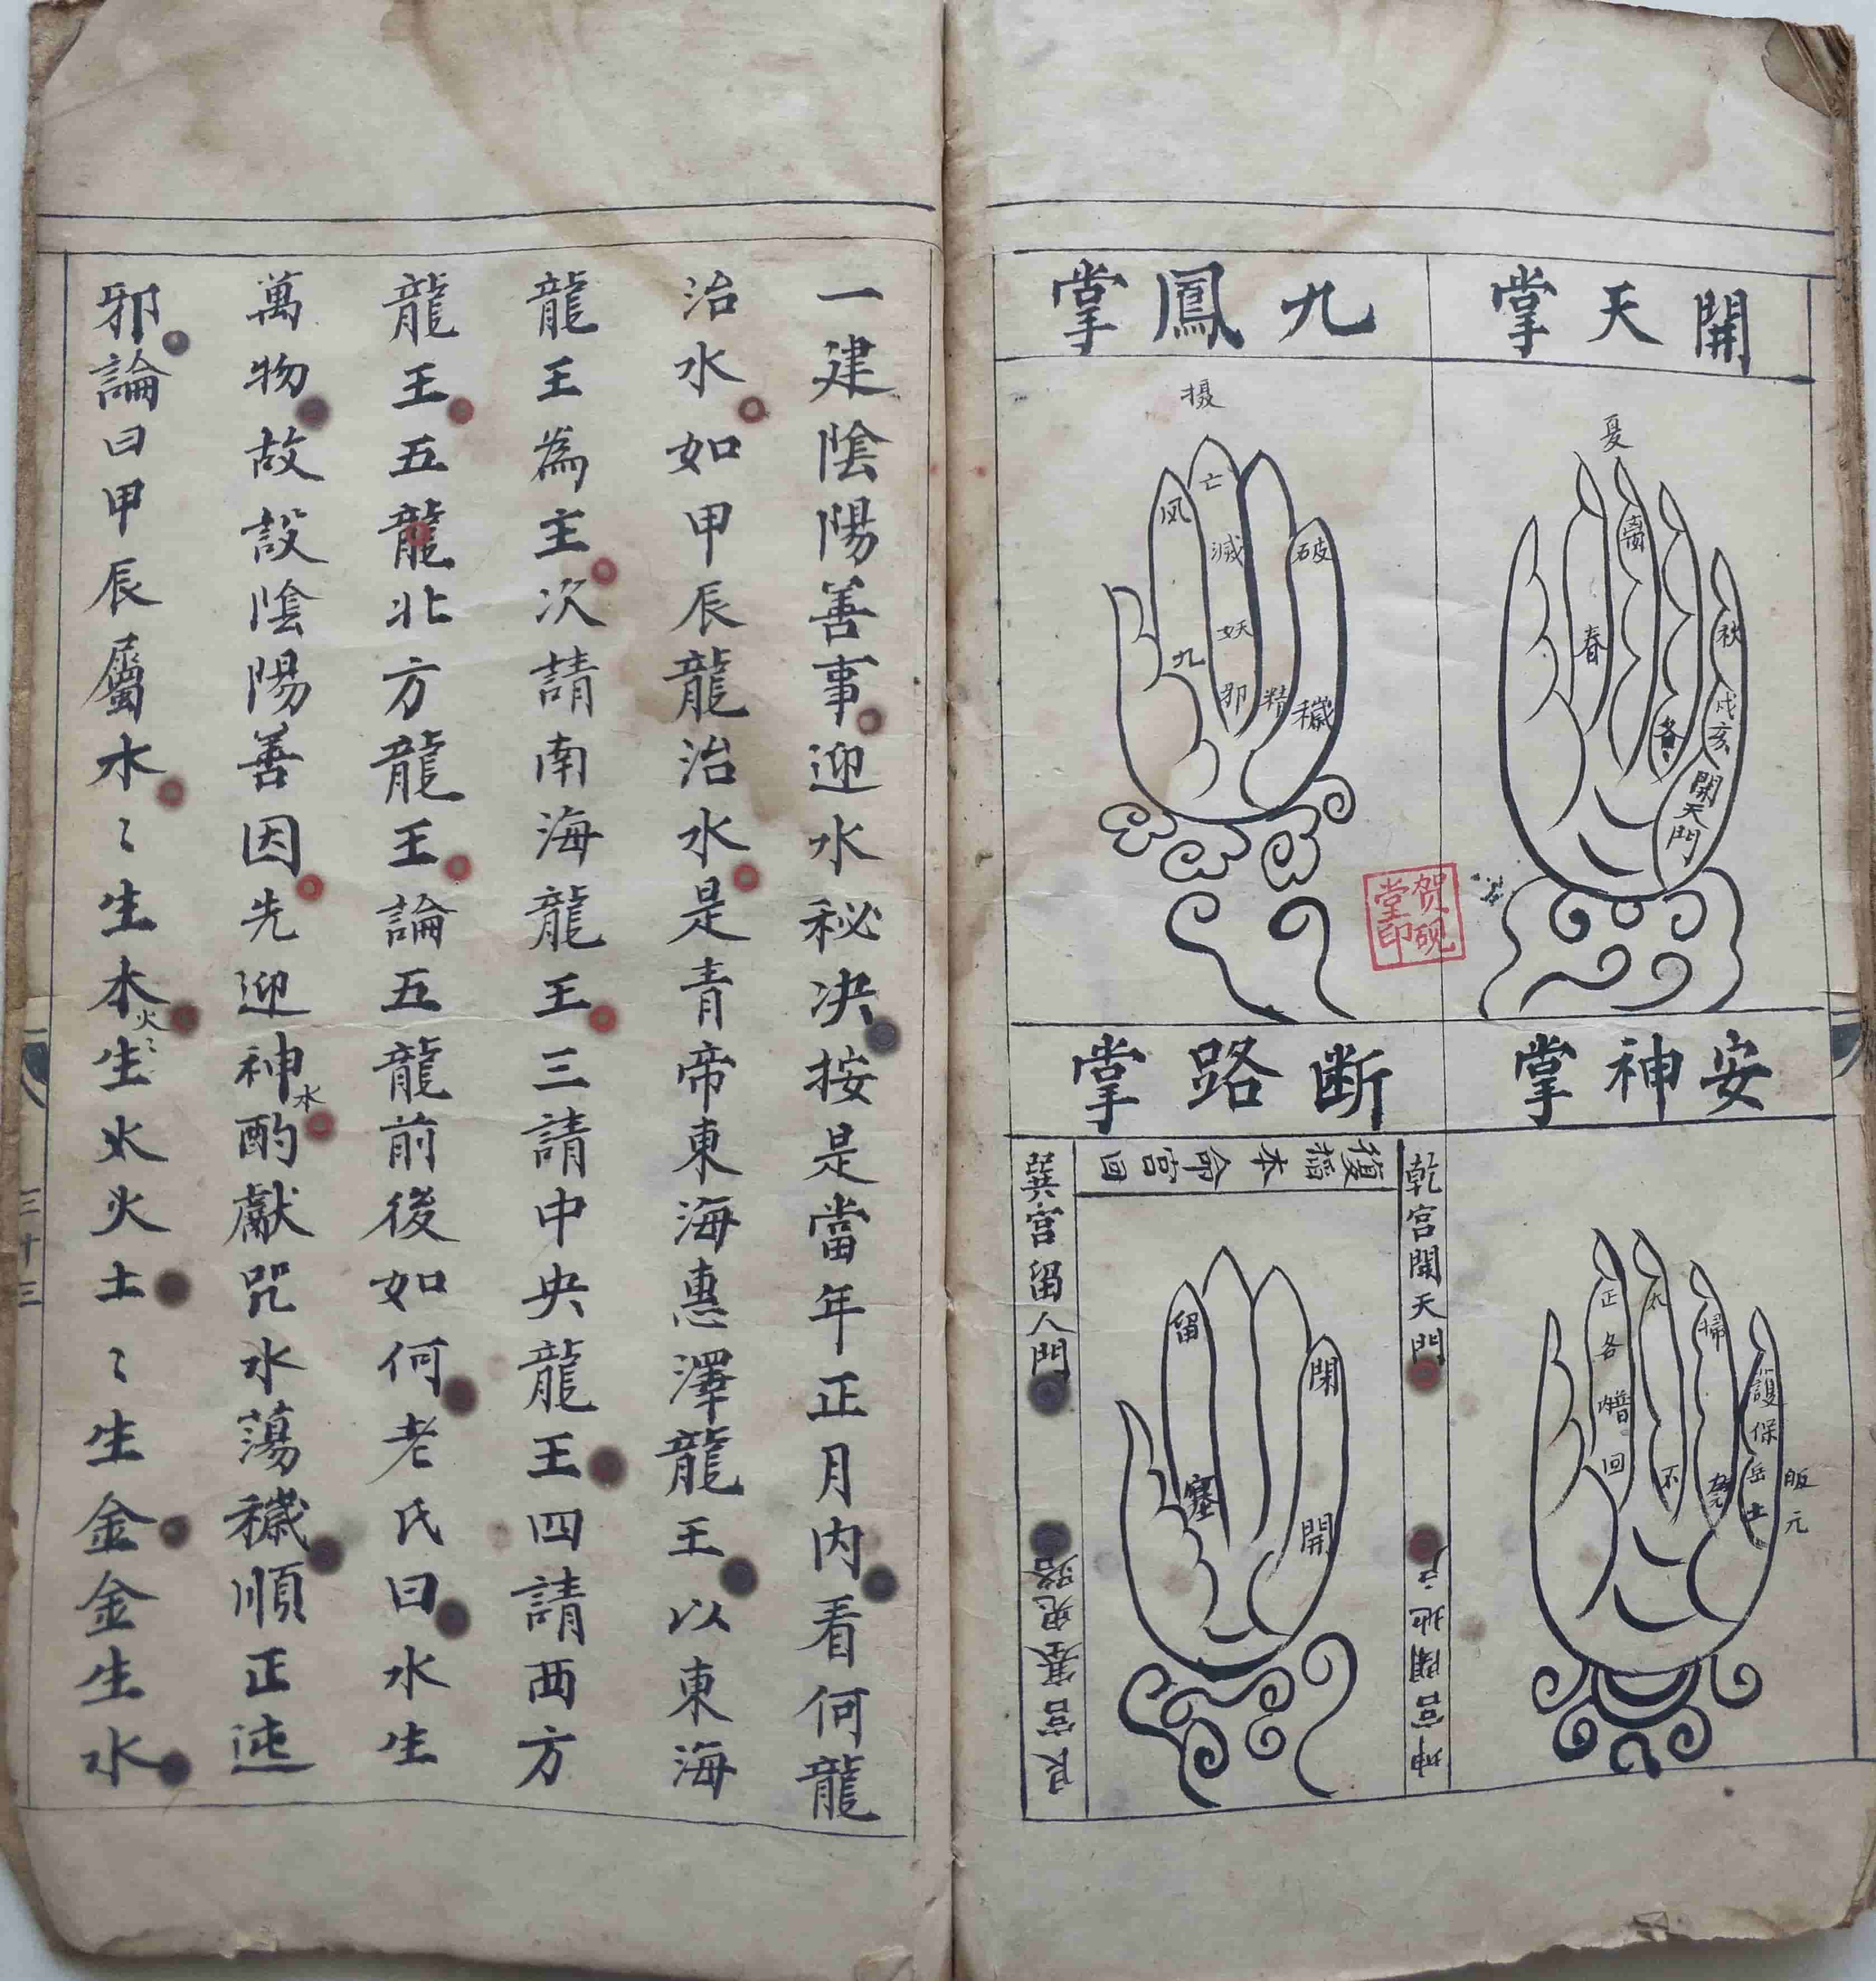 開天掌
夏
春
秋
冬
戌亥
開天門
九鳳掌
摄
凤
九
亡
滅
妖
邪
精
破
穢
贺砚堂印
安神掌
正
各
回
不
掃
護
保
岳
士
元
断路掌
乾宮開天門
坤宮閉地户
復招本命宮回
巽宮留人門
艮宮塞鬼路
留
塞
閉
開
一建陰陽善事迎水秘决按是當年正月内看何龍
治水如甲辰龍治水是青帝東海惠澤龍王以東海
龍王為主次請南海龍王三請中央龍王四請西方
龍王五龍北方龍王論五龍前後如何老氏曰水生
萬物故設陰陽善因先迎神水酌獻咒水蕩穢順正迍
邪論曰甲辰屬水〻生木火〻生火火土〻生金金生水
三十三